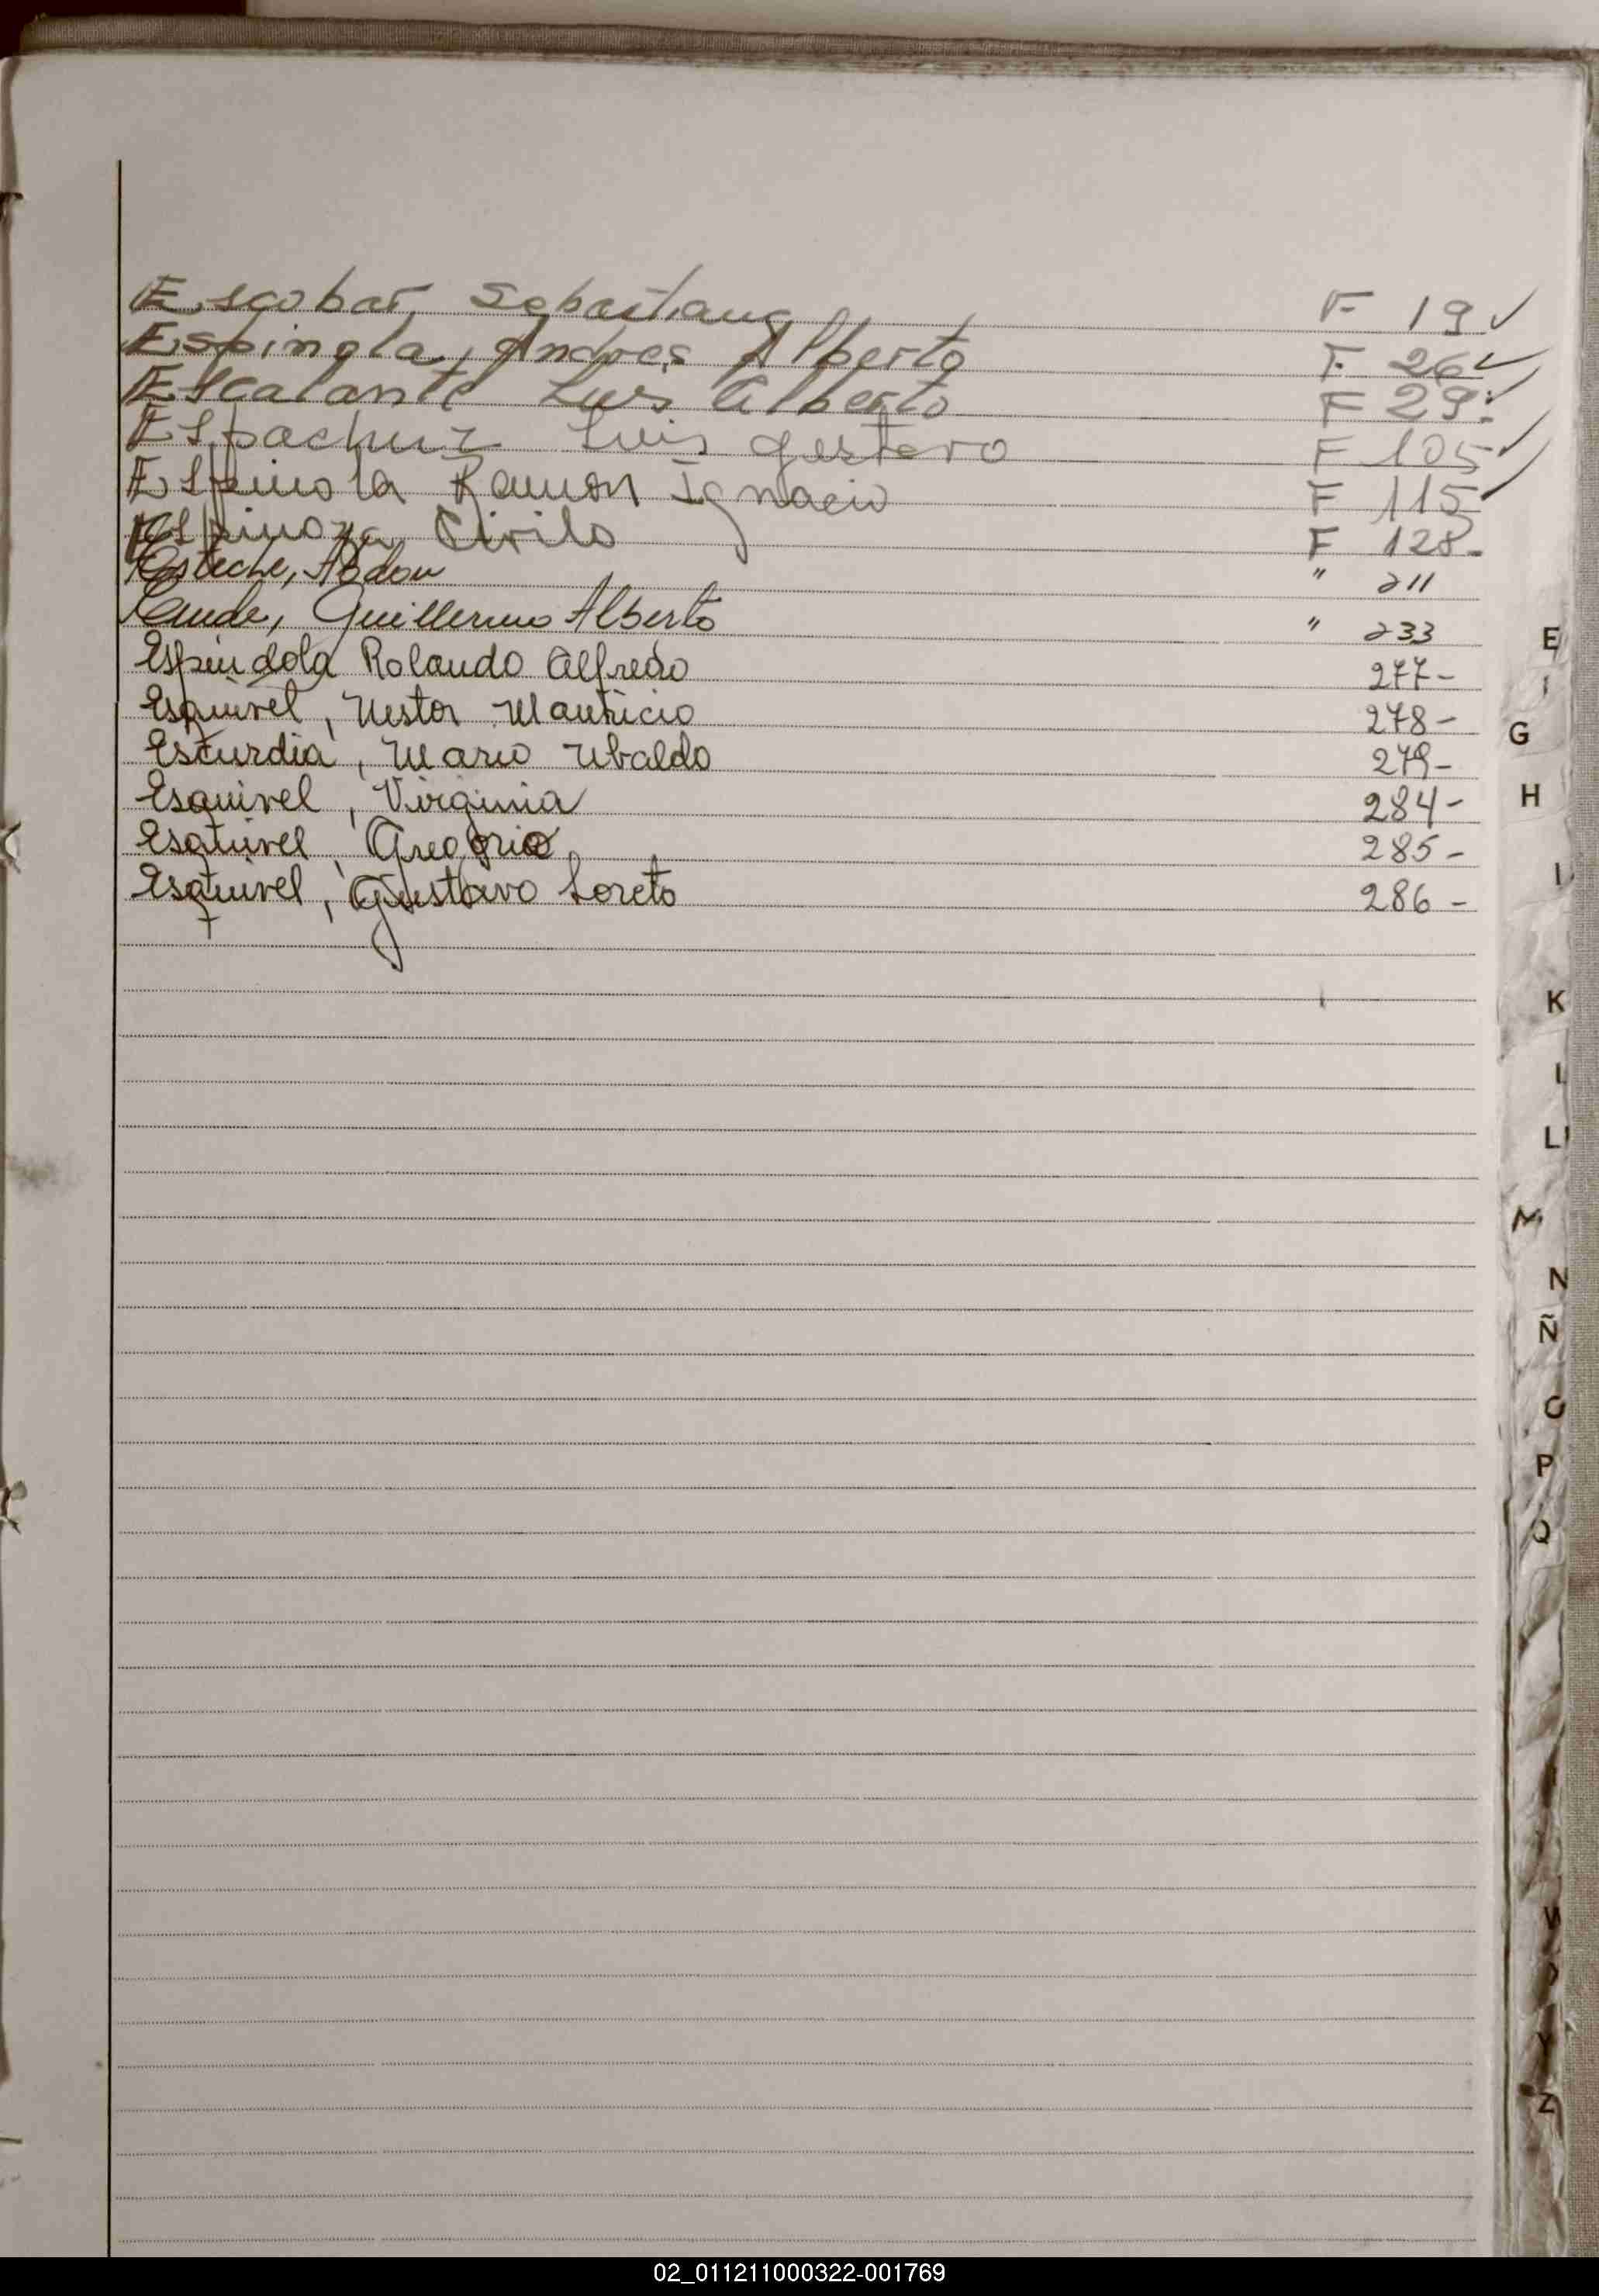 Escobar, Sebastiana F- 19 ✓
Espinola, Andres Alberto F. 26 ✓
Escalante Luis Alberto F 29: ✓
Luis gustavo F 105 ✓
Espinola Ramon Ignacio F 115 ✓
Espinoza Cirilo F 128-
Esteche, Abdon " 211
Guillermo Alberto " 233
Espindola Rolando Alfredo 277-
Esquivel, Nestor Mauricio 278-
Esturdia, Mario Ubaldo 279-
Esquivel, Virginia 284-
Esquivel, Gregorio 285-
Esquivel, Gustavo Loreto 286-
E
G
H
I
K
L
LL
M
N
Ñ
O
P
Q
W
Y
Z
02_011211000322-001769